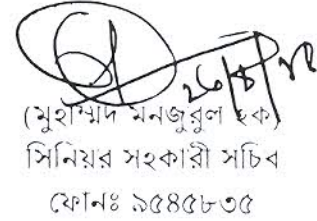 ২৬/৪/১৮
(মুহাম্মদ মনজুরুল হক)
সিনিয়র সহকারী সচিব
ফোনঃ ৯৫৪৫৮৩৫